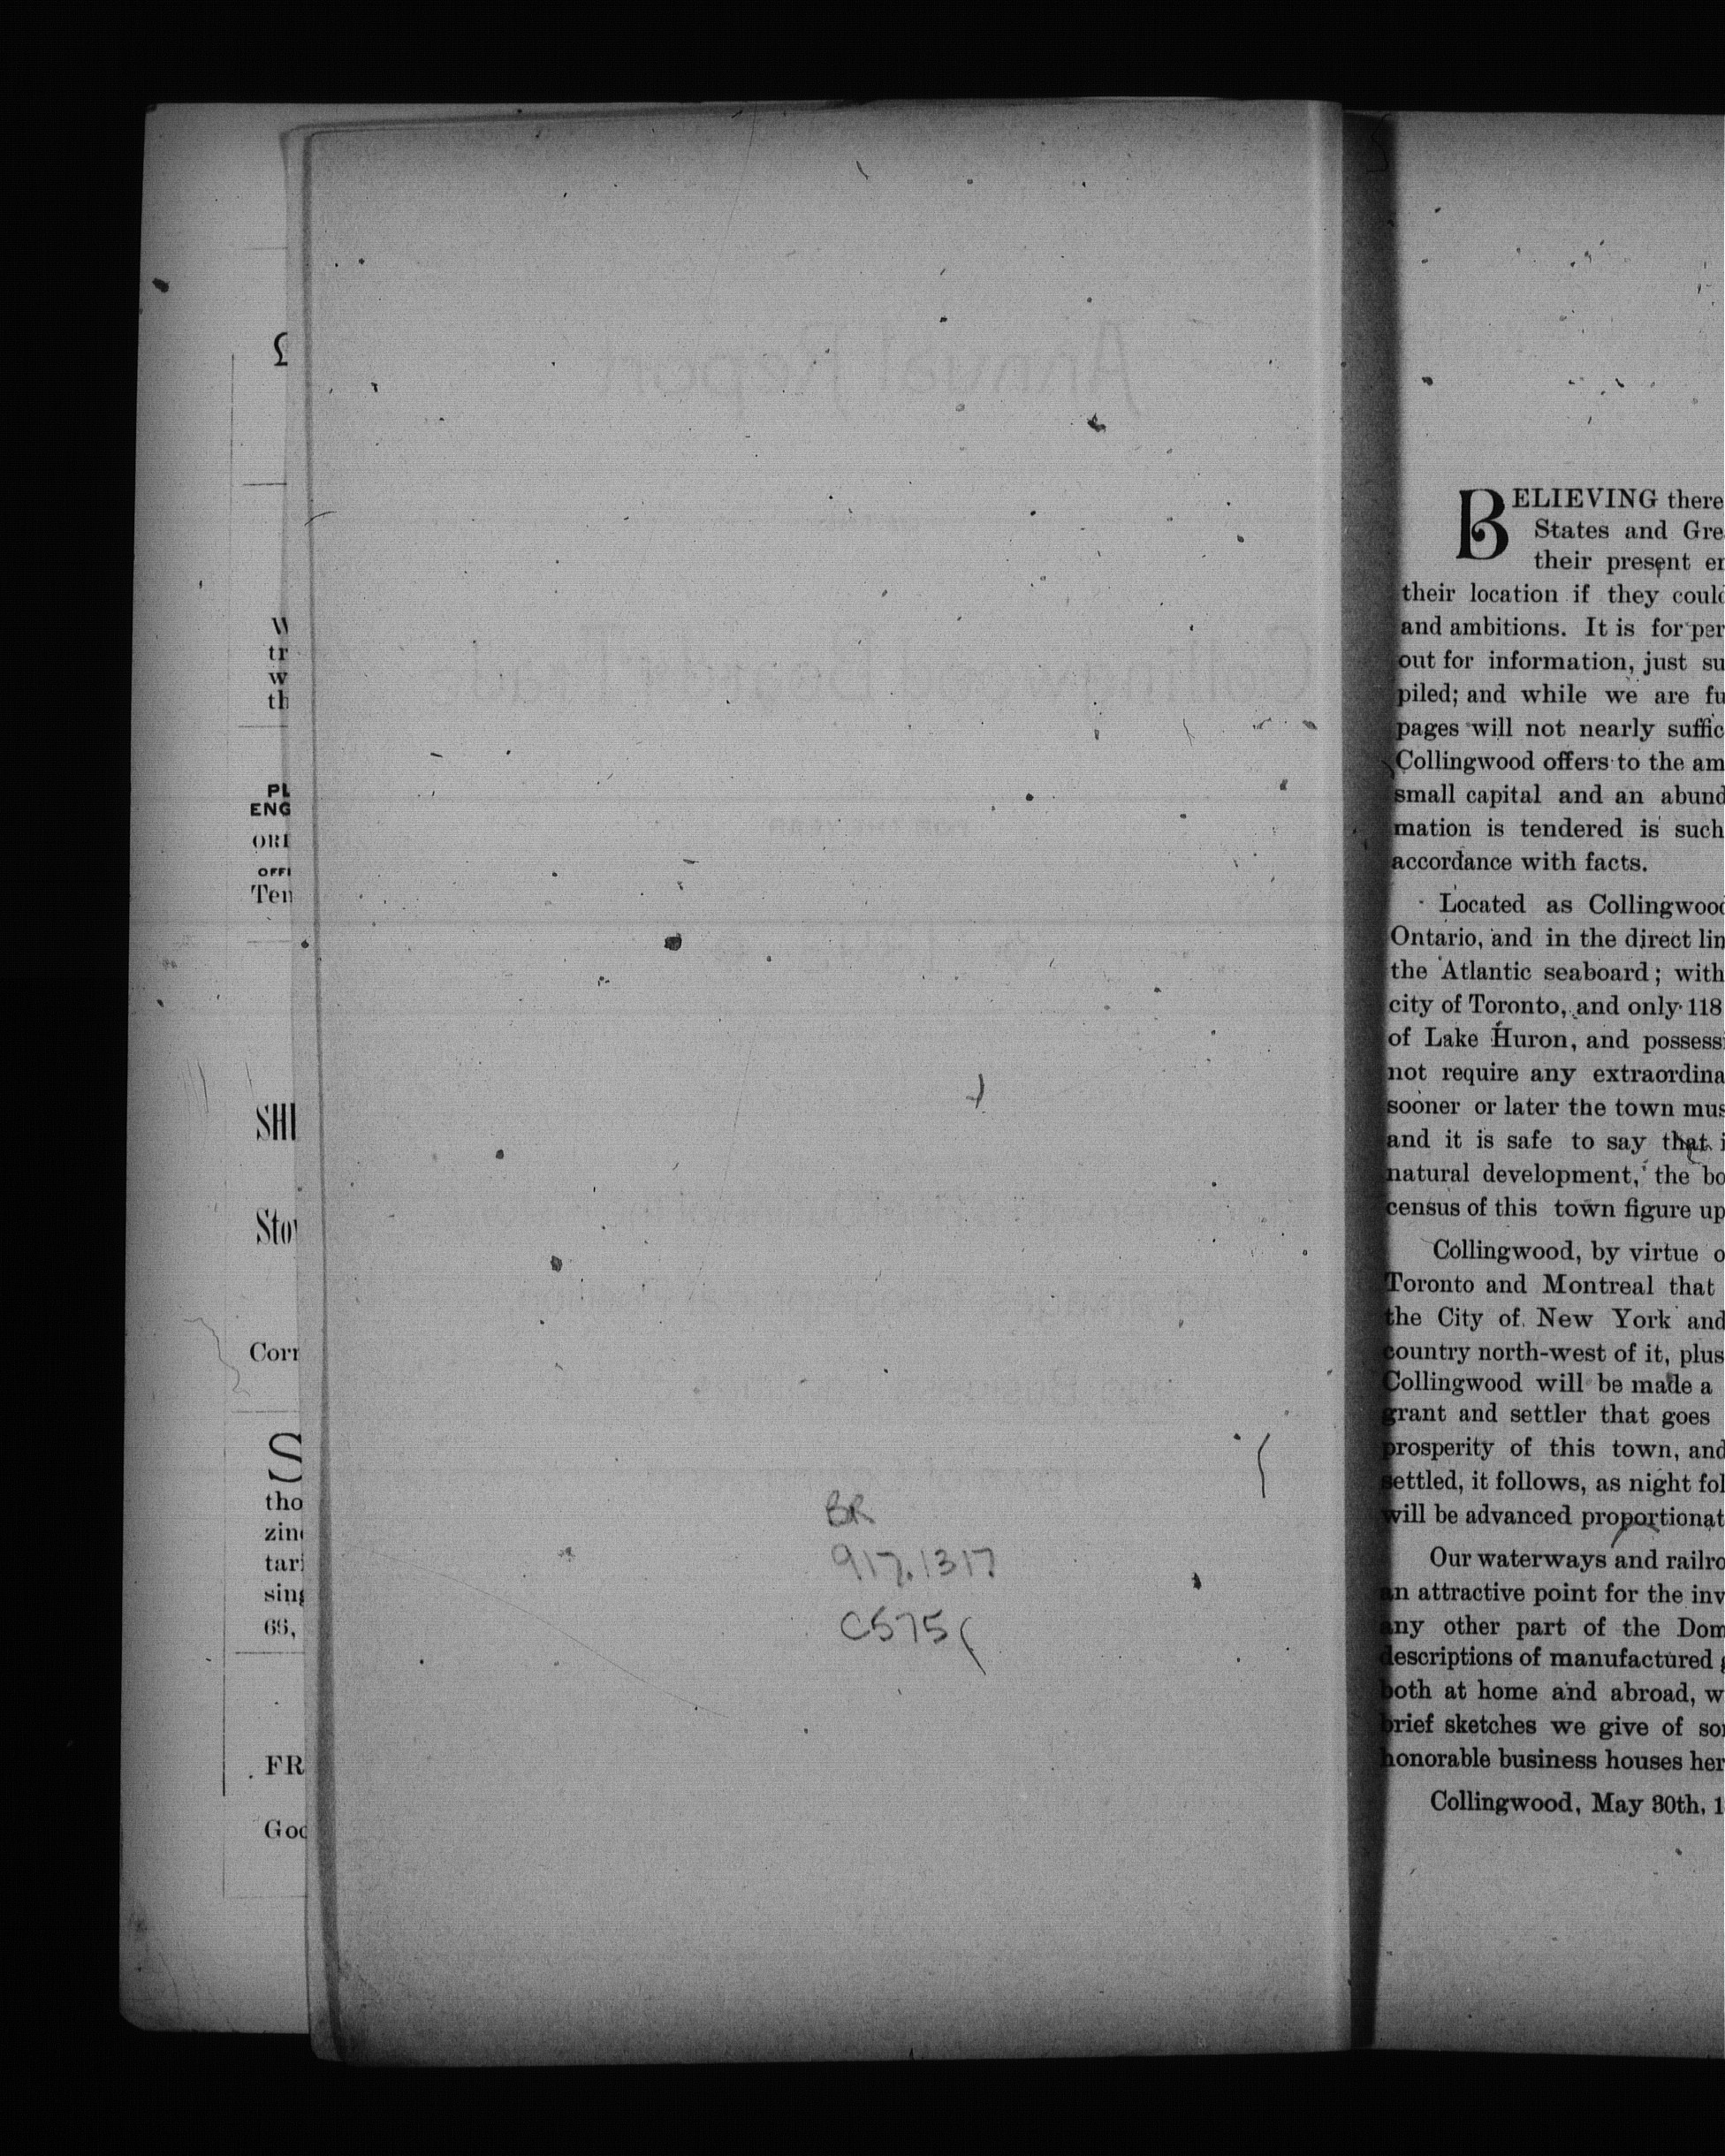 W
tr
w
th
PL
ENG
ORI
OFFI
Ten
SHI
Sto
Corr
S
tho
zin
tar
sing
66,
FR
Goo
Annual Report
Collingwood Board of Trade
FOR THE YEAR
BR
917.1317
C575
BELIEVING there
States and Gre
their present en
their location if they could
and ambitions. It is for per
out for information, just su
piled; and while we are fu
pages will not nearly suffic
Collingwood offers to the am
small capital and an abund
mation is tendered is such
accordance with facts.
Located as Collingwood
Ontario, and in the direct lin
the Atlantic seaboard; with
city of Toronto, and only 118
of Lake Huron, and possessi
not require any extraordina
sooner or later the town mus
and it is safe to say that i
natural development, the bo
census of this town figure up
Collingwood, by virtue o
Toronto and Montreal that
the City of New York and
country north-west of it, plus
Collingwood will be made a
grant and settler that goes
prosperity of this town, and
settled, it follows, as night fol
will be advanced proportionat
Our waterways and railro
an attractive point for the inv
any other part of the Dom
descriptions of manufactured g
both at home and abroad, w
brief sketches we give of so
honorable business houses her
Collingwood, May 30th, 1